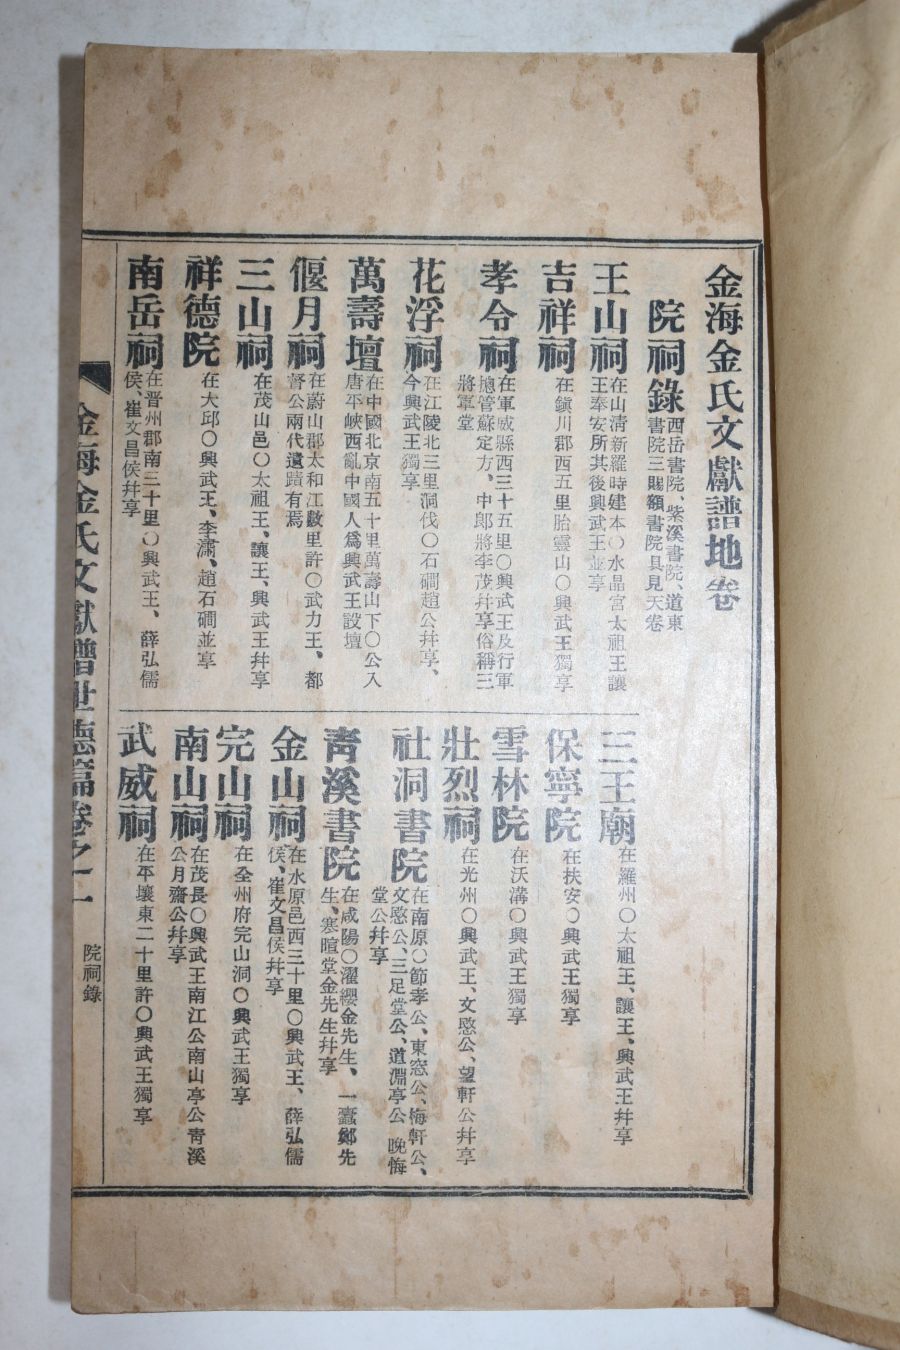 金海金氏文獻譜地卷
院祠錄
西岳書院、紫溪書院、道東
書院三賜額書院具見天卷
王山祠
在山清新羅時建本〇水晶宮太祖王讓
王奉安所其後興武王並享
吉祥祠
在鎭川郡西五里胎靈山〇興武王獨享
孝令祠
在軍威縣西三十五里〇興武王及行軍
摠管蘇定方、中郞將李茂幷享俗稱三
將軍堂
花浮祠
在江陵北三里洞伐〇石磵趙公幷享、
今興武王獨享
萬壽壇
在中國北京南五十里萬壽山下〇公入
唐平峽西亂中國人爲興武王設壇
偃月祠
在蔚山郡太和江數里許〇武力王、都
督公兩代遺蹟有焉
三山祠
在茂山邑〇太祖王、讓王、興武王幷享
祥德院
在大邱〇興武王、李潚、趙石磵並享
南岳祠
在晋州郡南三十里〇興武王、薛弘儒
侯、崔文昌侯幷享
三王廟
在羅州〇太祖王、讓王、興武王幷享
保寧院
在扶安〇興武王獨享
雪林院
在沃溝〇興武王獨享
壯烈祠
在光州〇興武王、文愍公、望軒公幷享
社洞書院
在南原〇節孝公、東窓公、梅軒公、
文愍公、三足堂公、道淵亭公 晚悔
堂公幷享
靑溪書院
在咸陽〇濯纓金先生、一蠹鄭先
生、寒暄堂金先生幷享
金山祠
在水原邑西三十里〇興武王、薛弘儒
侯、崔文昌侯幷享
完山祠
在全州府完山洞〇興武王獨享
南山祠
在茂長〇興武王南江公南山亭公靑溪
公月齋公幷享
武威祠
在平壤東二十里許〇興武王獨享
金海金氏文獻譜世德篇卷之二
院祠錄